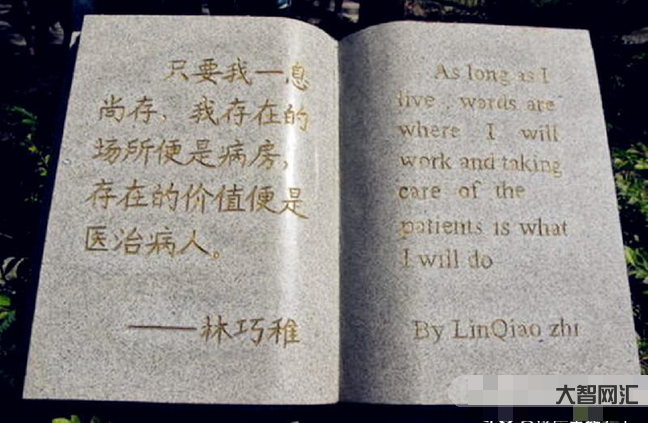 只要我一息
尚存，我存在的
场所便是病房，
存在的价值便是
医治病人。
——林巧稚
As long as I
live , words are
where I will
work and taking
care of the
patients is what
I will do
By LinQiao zhi
大智网汇